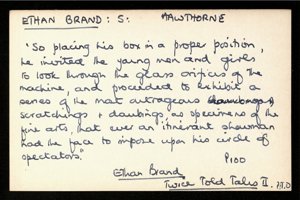 ETHAN BRAND: S: HAWTHORNE
"So placing his box in a proper position,
he invited the young men and girls
to look through the glass orifices of the
machine, and proceeded to exhibit a
series of the most outrageous
scratchings & daubings, as specimens of the
fine arts, that ever an itinerant showman
had the face to impose upon his circle of
spectators.
P100
Ethan Brand
Twice Told Tales II.